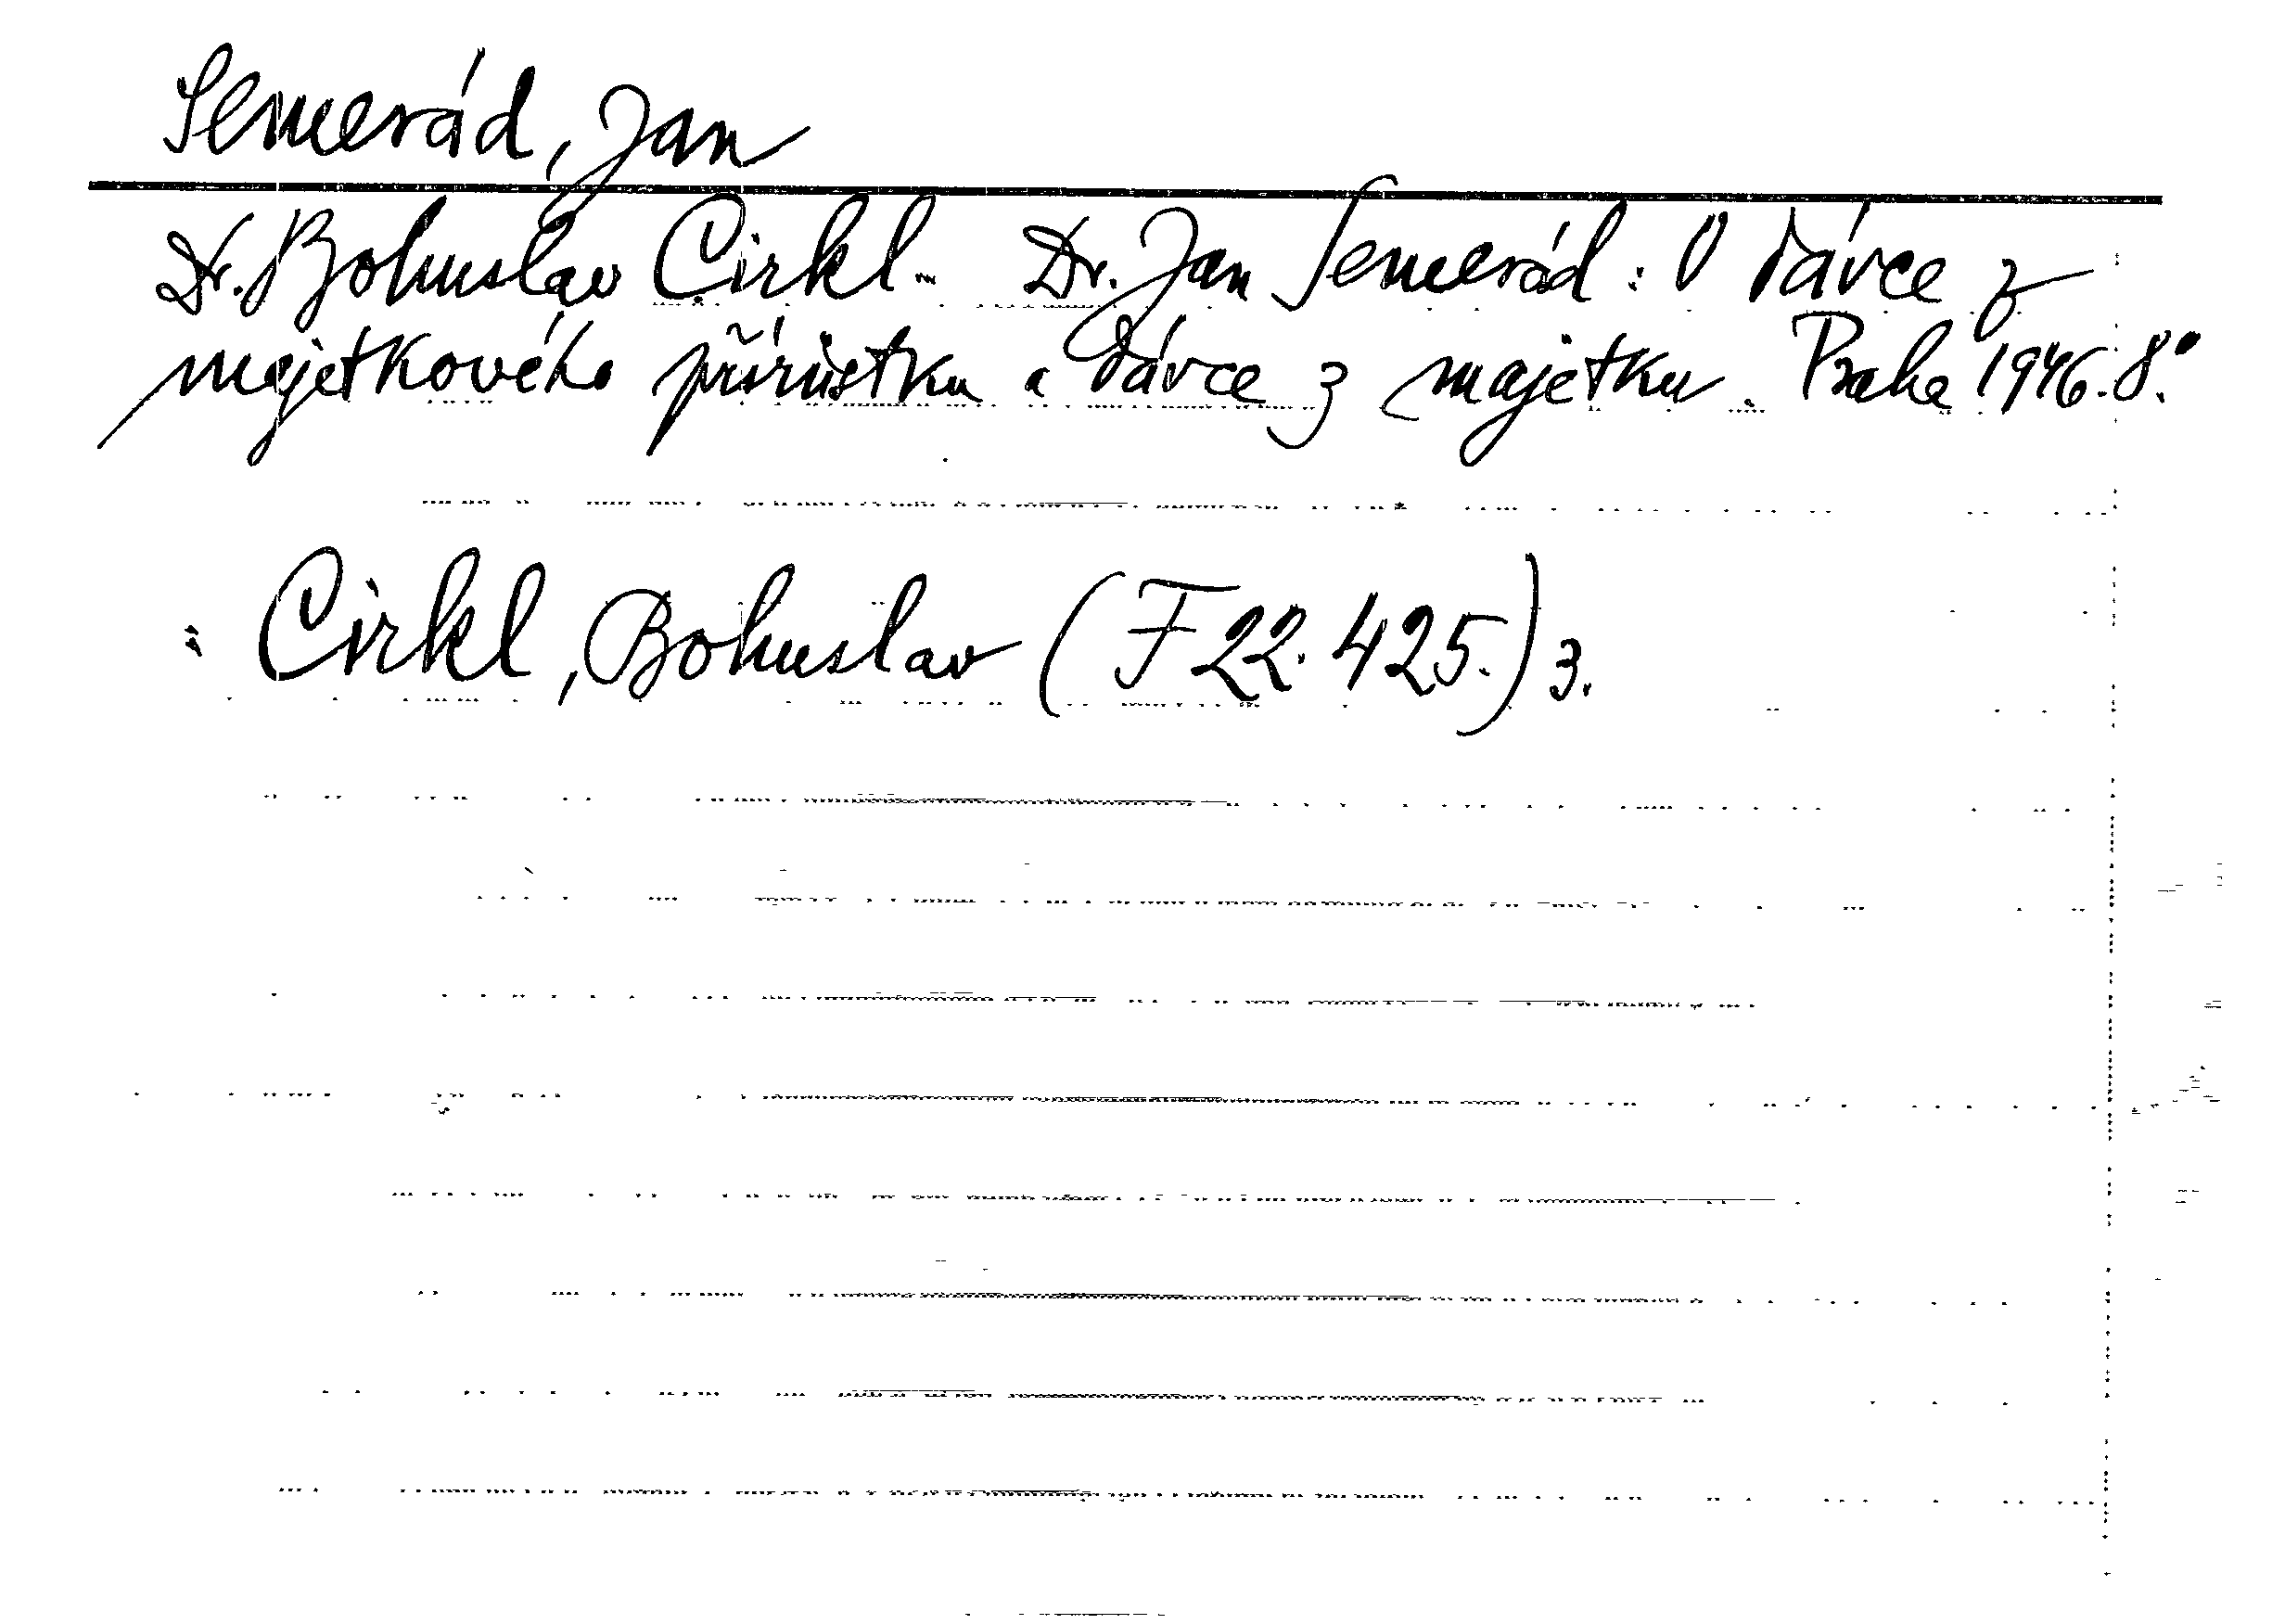 Semerád, Jan
Dr. Bohuslav Cirkl - Dr. Jan Semerád: O dávce z
majetkového přírůstku a dávce z majetku. Praha 1946. 8.°
: Cirkl, Bohuslav (F 22.425.) 3.